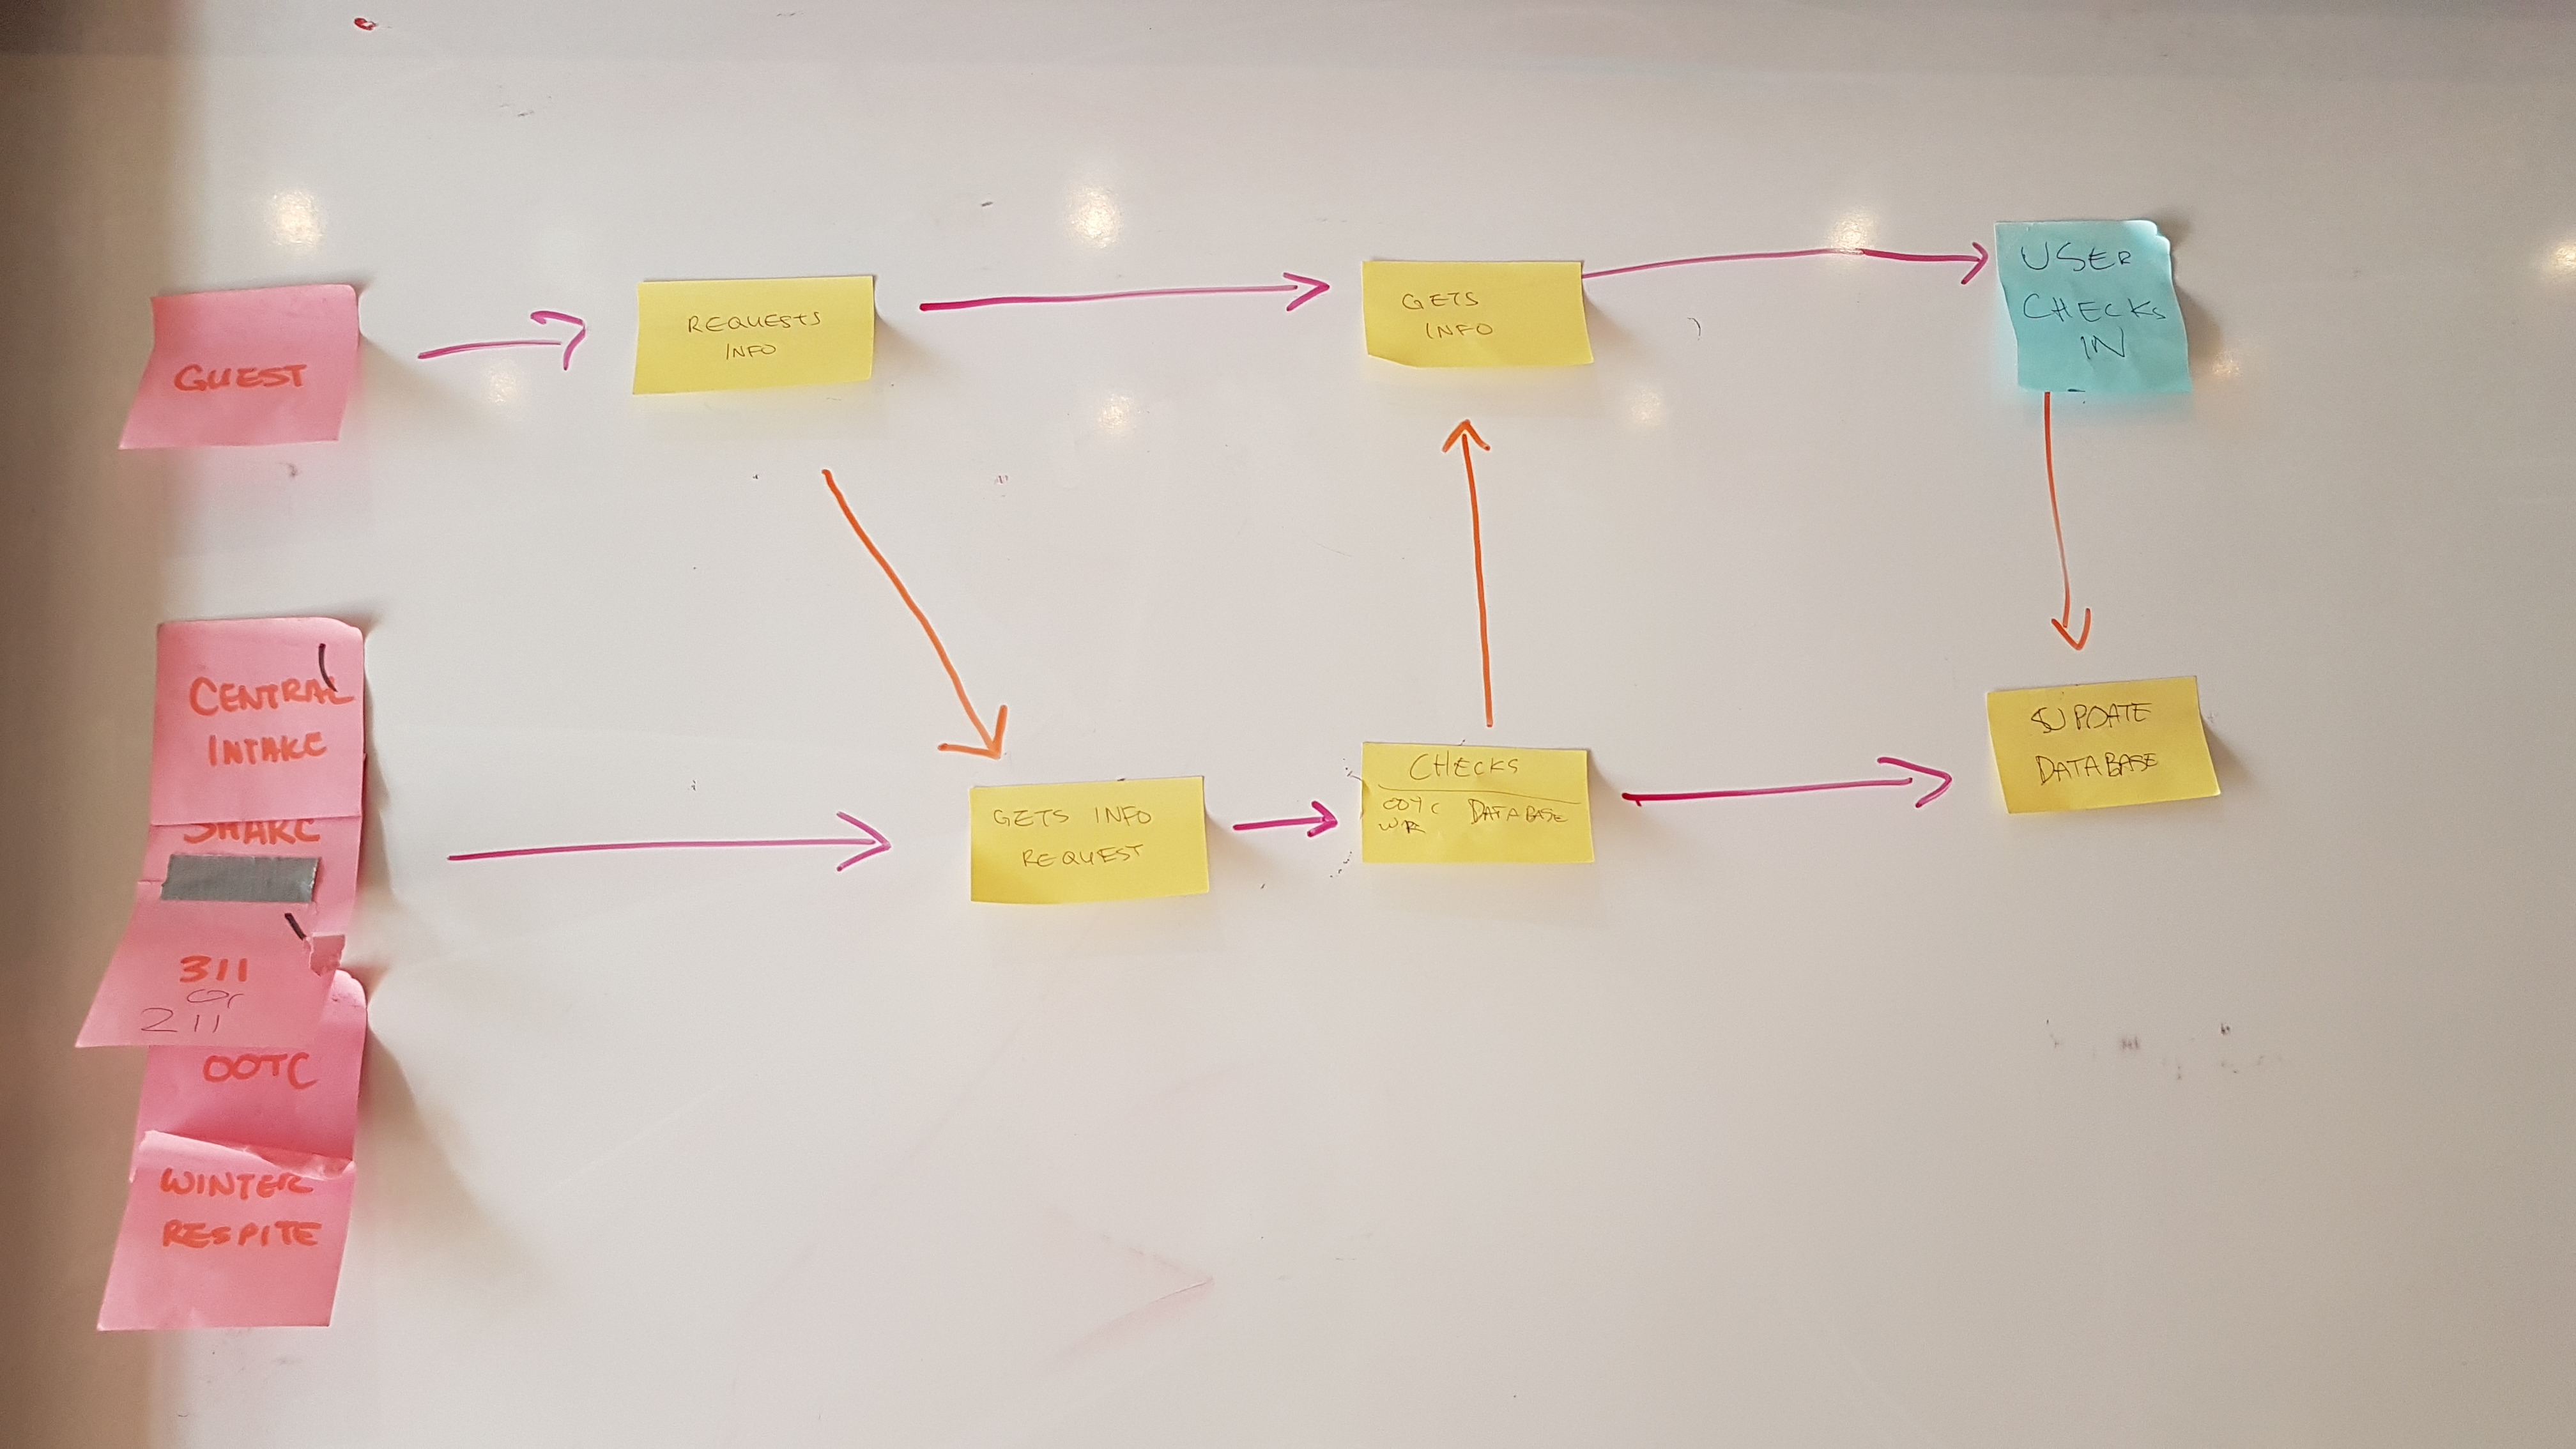 GUEST
REQUESTS
INFO
GETS
INFO
USER
CHECKS
IN
CENTRAL
INTAKE
SHARC
311
or
211
OOTC
WINTER
RESPITE
GETS INFO
REQUEST
CHECKS
OOTC DATABASE
WR
UPDATE
DATABASE